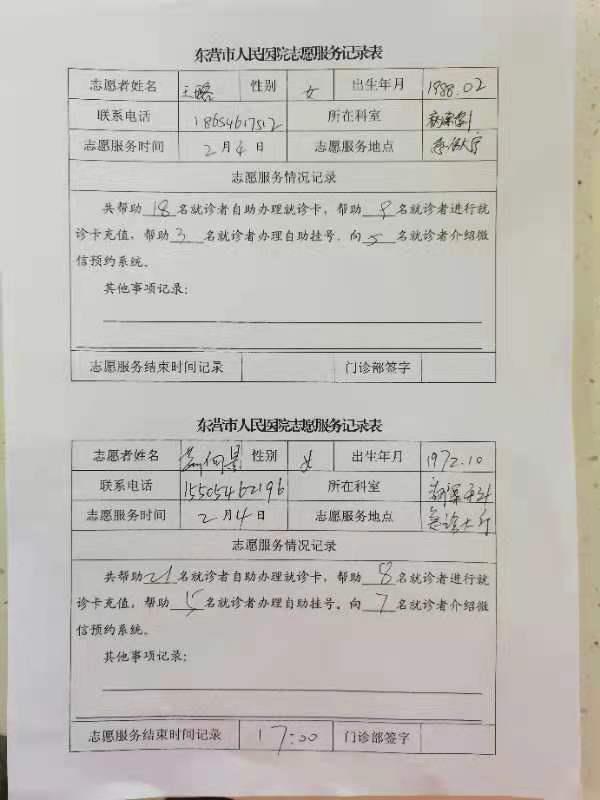 东营市人民医院志愿服务记录表
志愿者姓名 王 性别 女 出生年月 1988.02
联系电话 18654617512 所在科室
志愿服务时间 2月4日 志愿服务地点 急诊大厅
志愿服务情况记录
共帮助 18 名就诊者自助办理就诊卡，帮助 9 名就诊者进行就
诊卡充值，帮助 3 名就诊者办理自助挂号，向 5 名就诊者介绍微
信预约系统。
其他事项记录：
志愿服务结束时间记录 门诊部签字
东营市人民医院志愿服务记录表
志愿者姓名 性别 女 出生年月 1972.10
联系电话 15505462196 所在科室
志愿服务时间 2月4日 志愿服务地点 急诊大厅
志愿服务情况记录
共帮助 21 名就诊者自助办理就诊卡，帮助 8 名就诊者进行就
诊卡充值，帮助 5 名就诊者办理自助挂号，向 7 名就诊者介绍微
信预约系统。
其他事项记录：
志愿服务结束时间记录 17:00 门诊部签字